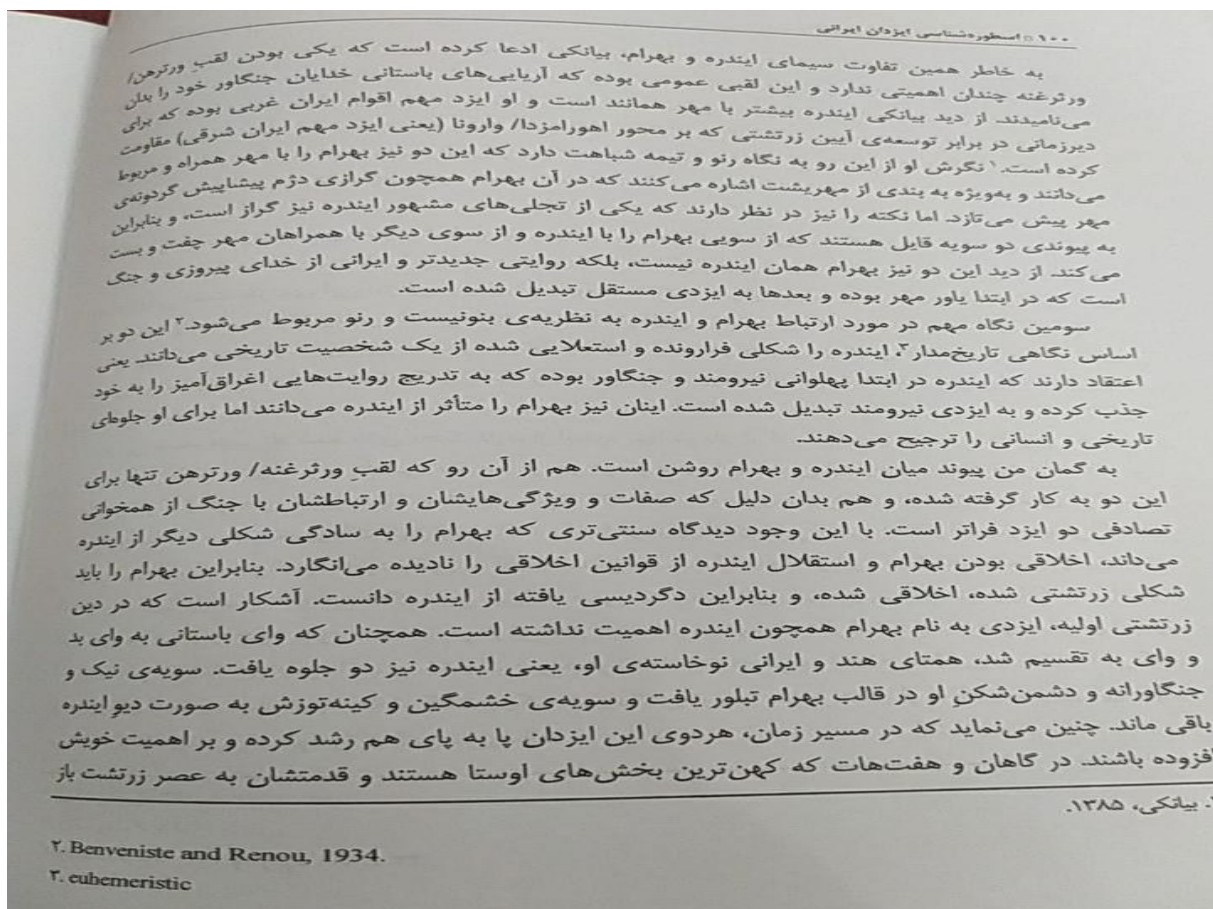 ۱۰۰ □ اسطوره‌شناسی ایزدان ایرانی
به خاطر همین تفاوت سیمای ایندره و بهرام، بیانکی ادعا کرده است که یکی بودن لقبِ ورترهن/
ورثرغنه چندان اهمیتی ندارد و این لقبی عمومی بوده که آریایی‌های باستانی خدایان جنگاور خود را بدان
می‌نامیدند. از دید بیانکی ایندره بیشتر با مهر همانند است و او ایزد مهم اقوام ایران غربی بوده که برای
دیرزمانی در برابر توسعه‌ی آیین زرتشتی که بر محور اهورامزدا/ وارونا (یعنی ایزد مهم ایران شرقی) مقاومت
کرده است.۱ نگرش او از این رو به نگاه رنو و تیمه شباهت دارد که این دو نیز بهرام را با مهر همراه و مربوط
می‌دانند و به‌ویژه به بندی از مهریشت اشاره می‌کنند که در آن بهرام همچون گرازی دژم پیشاپیش گردونه‌ی
مهر پیش می‌تازد. اما نکته را نیز در نظر دارند که یکی از تجلی‌های مشهور ایندره نیز گراز است، و بنابراین
به پیوندی دو سویه قایل هستند که از سویی بهرام را با ایندره و از سوی دیگر با همراهان مهر چفت و بست
می‌کند. از دید این دو نیز بهرام همان ایندره نیست، بلکه روایتی جدیدتر و ایرانی از خدای پیروزی و جنگ
است که در ابتدا یاور مهر بوده و بعدها به ایزدی مستقل تبدیل شده است.
سومین نگاه مهم در مورد ارتباط بهرام و ایندره به نظریه‌ی بنونیست و رنو مربوط می‌شود.۲ این دو بر
اساس نگاهی تاریخ‌مدار۳، ایندره را شکلی فرارونده و استعلایی شده از یک شخصیت تاریخی می‌دانند. یعنی
اعتقاد دارند که ایندره در ابتدا پهلوانی نیرومند و جنگاور بوده که به تدریج روایت‌هایی اغراق‌آمیز را به خود
جذب کرده و به ایزدی نیرومند تبدیل شده است. اینان نیز بهرام را متأثر از ایندره می‌دانند اما برای او جلوه‌ای
تاریخی و انسانی را ترجیح می‌دهند.
به گمان من پیوند میان ایندره و بهرام روشن است. هم از آن رو که لقبِ ورثرغنه/ ورترهن تنها برای
این دو به کار گرفته شده، و هم بدان دلیل که صفات و ویژگی‌هایشان و ارتباطشان با جنگ از همخوانی
تصادفی دو ایزد فراتر است. با این وجود دیدگاه سنتی‌تری که بهرام را به سادگی شکلی دیگر از ایندره
می‌داند، اخلاقی بودن بهرام و استقلال ایندره از قوانین اخلاقی را نادیده می‌انگارد. بنابراین بهرام را باید
شکلی زرتشتی شده، اخلاقی شده، و بنابراین دگردیسی یافته از ایندره دانست. آشکار است که در دین
زرتشتی اولیه، ایزدی به نام بهرام همچون ایندره اهمیت نداشته است. همچنان که وای باستانی به وای بد
و وای به تقسیم شد، همتای هند و ایرانی نوخاسته‌ی او، یعنی ایندره نیز دو جلوه یافت. سویه‌ی نیک و
جنگاورانه و دشمن‌شکنِ او در قالب بهرام تبلور یافت و سویه‌ی خشمگین و کینه‌توزش به صورت دیوِ ایندره
باقی ماند. چنین می‌نماید که در مسیر زمان، هردوی این ایزدان پا به پای هم رشد کرده و بر اهمیت خویش
افزوده باشند. در گاهان و هفت‌هات که کهن‌ترین بخش‌های اوستا هستند و قدمتشان به عصر زرتشت باز
۱. بیانکی، ۱۳۸۵.
۲. Benveniste and Renou, 1934.
۳. euhemeristic